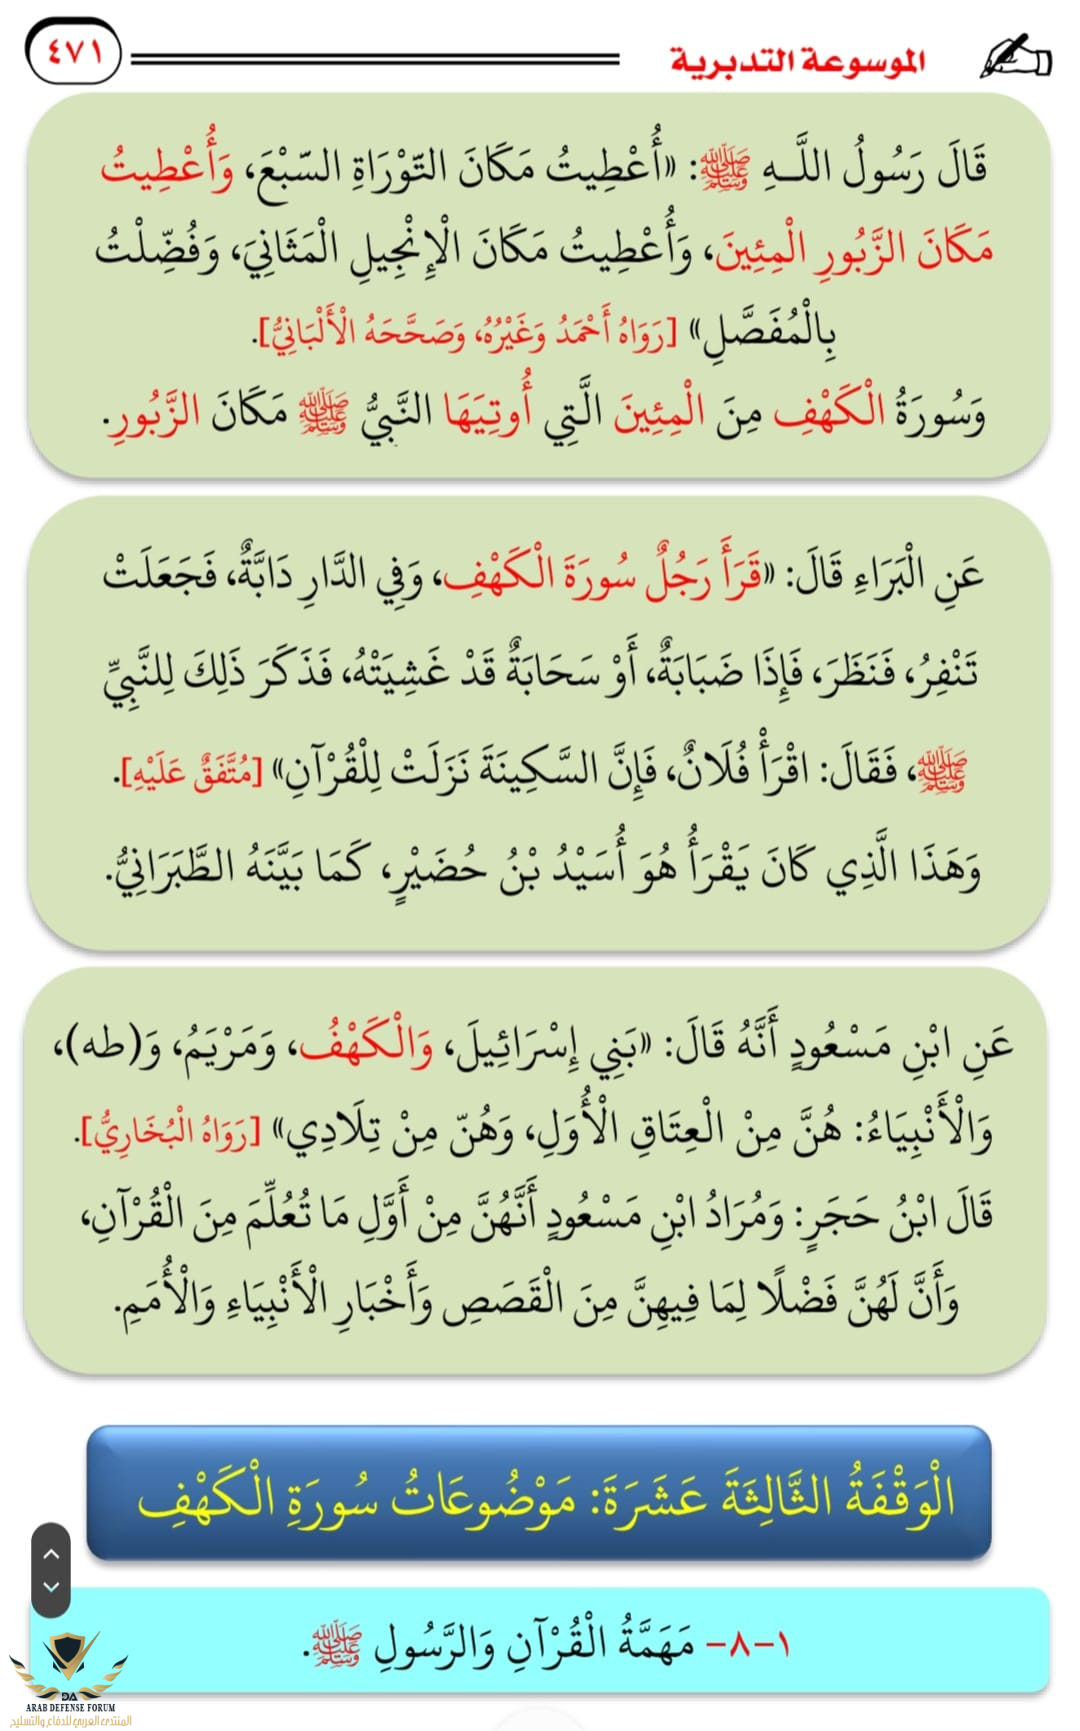 الموسوعة التدبرية
٤٧١
قَالَ رَسُولُ اللَّـهِ ﷺ: «أُعْطِيتُ مَكَانَ التّوْرَاةِ السّبْعَ، وَأُعْطِيتُ
مَكَانَ الزَّبُورِ الْمِئِينَ، وَأُعْطِيتُ مَكَانَ الْإِنْجِيلِ الْمَثَانِيَ، وَفُضِّلْتُ
بِالْمُفَصَّلِ» [رَوَاهُ أَحْمَدُ وَغَيْرُهُ، وَصَحَّحَهُ الْأَلْبَانِيُّ].
وَسُورَةُ الْكَهْفِ مِنَ الْمِئِينَ الَّتِي أُوتِيَهَا النَّبِيُّ ﷺ مَكَانَ الزَّبُورِ.
عَنِ الْبَرَاءِ قَالَ: «قَرَأَ رَجُلٌ سُورَةَ الْكَهْفِ، وَفِي الدَّارِ دَابَّةٌ، فَجَعَلَتْ
تَنْفِرُ، فَنَظَرَ، فَإِذَا ضَبَابَةٌ، أَوْ سَحَابَةٌ قَدْ غَشِيَتْهُ، فَذَكَرَ ذَلِكَ لِلنَّبِيِّ
ﷺ، فَقَالَ: اقْرَأْ فُلَانٌ، فَإِنَّ السَّكِينَةَ نَزَلَتْ لِلْقُرْآنِ» [مُتَّفَقٌ عَلَيْهِ].
وَهَذَا الَّذِي كَانَ يَقْرَأُ هُوَ أُسَيْدُ بْنُ حُضَيْرٍ، كَمَا بَيَّنَهُ الطَّبَرَانِيُّ.
عَنِ ابْنِ مَسْعُودٍ أَنَّهُ قَالَ: «بَنِي إِسْرَائِيلَ، وَالْكَهْفُ، وَمَرْيَمُ، وَ(طه)،
وَالْأَنْبِيَاءُ: هُنَّ مِنْ الْعِتَاقِ الْأُوَلِ، وَهُنّ مِنْ تِلَادِي» [رَوَاهُ الْبُخَارِيُّ].
قَالَ ابْنُ حَجَرٍ: وَمُرَادُ ابْنِ مَسْعُودٍ أَنَّهُنَّ مِنْ أَوَّلِ مَا تُعُلِّمَ مِنَ الْقُرْآنِ،
وَأَنَّ لَهُنَّ فَضْلًا لِمَا فِيهِنَّ مِنَ الْقَصَصِ وَأَخْبَارِ الْأَنْبِيَاءِ وَالْأُمَمِ.
الْوَقْفَةُ الثَّالِثَةَ عَشَرَةَ: مَوْضُوعَاتُ سُورَةِ الْكَهْفِ
١-٨- مَهَمَّةُ الْقُرْآنِ وَالرَّسُولِ ﷺ.
DA
ARAB DEFENSE FORUM
المنتدى العربي للدفاع والتسليح